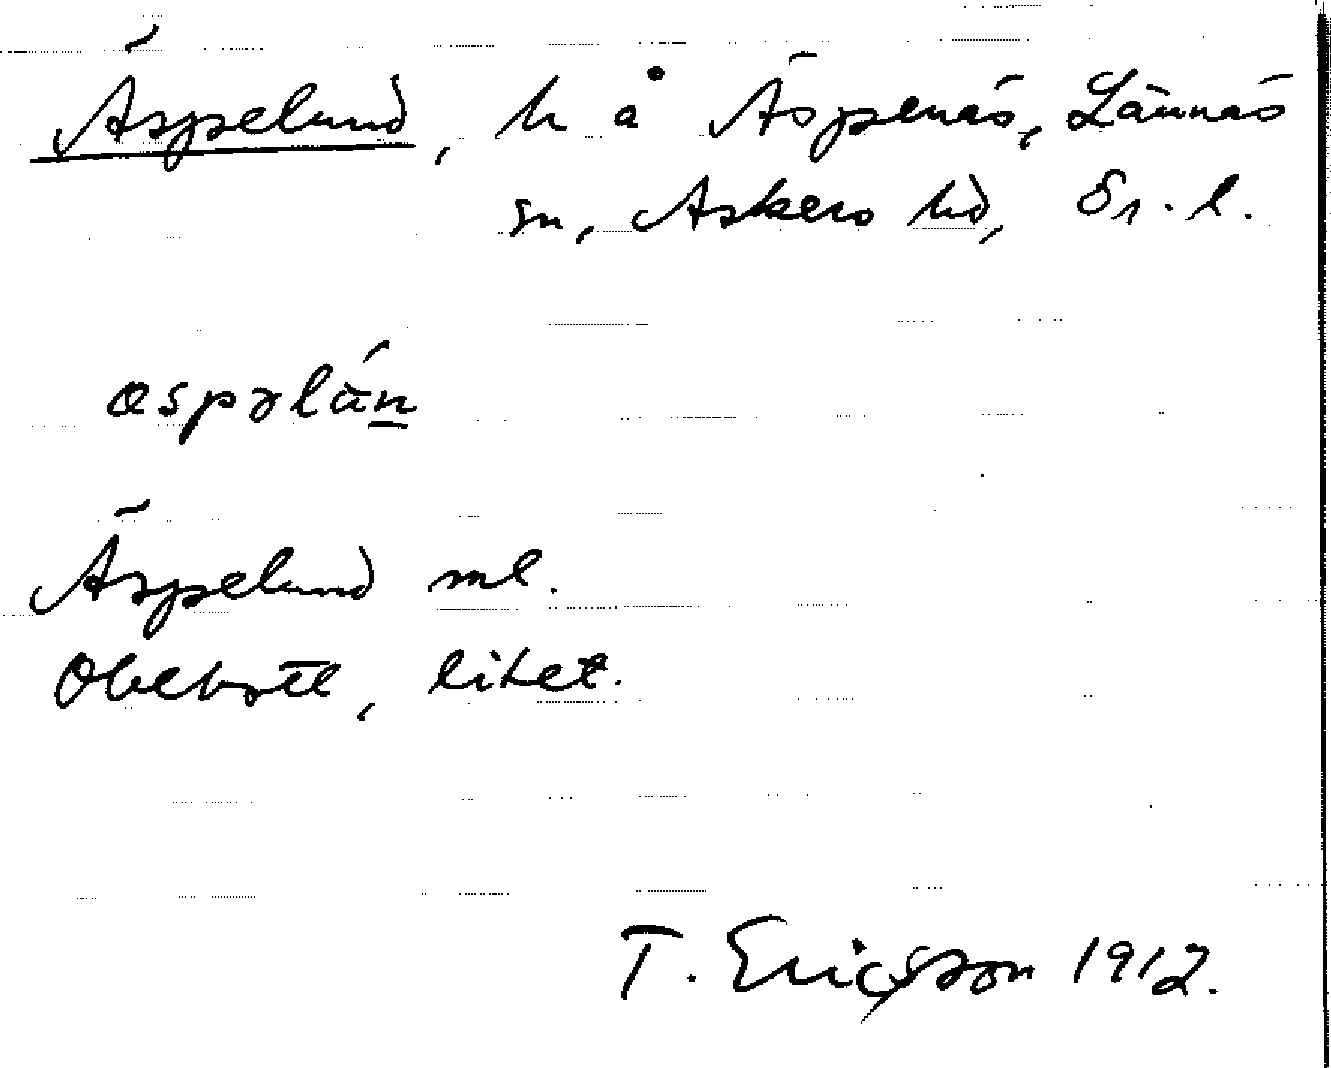 Äspelund, h å Äspenäs, Lännäs
sn, Askers hd, Ör. l.
Äspelund ml.
Obebyggt, litet.
T. Ericsson 1912.